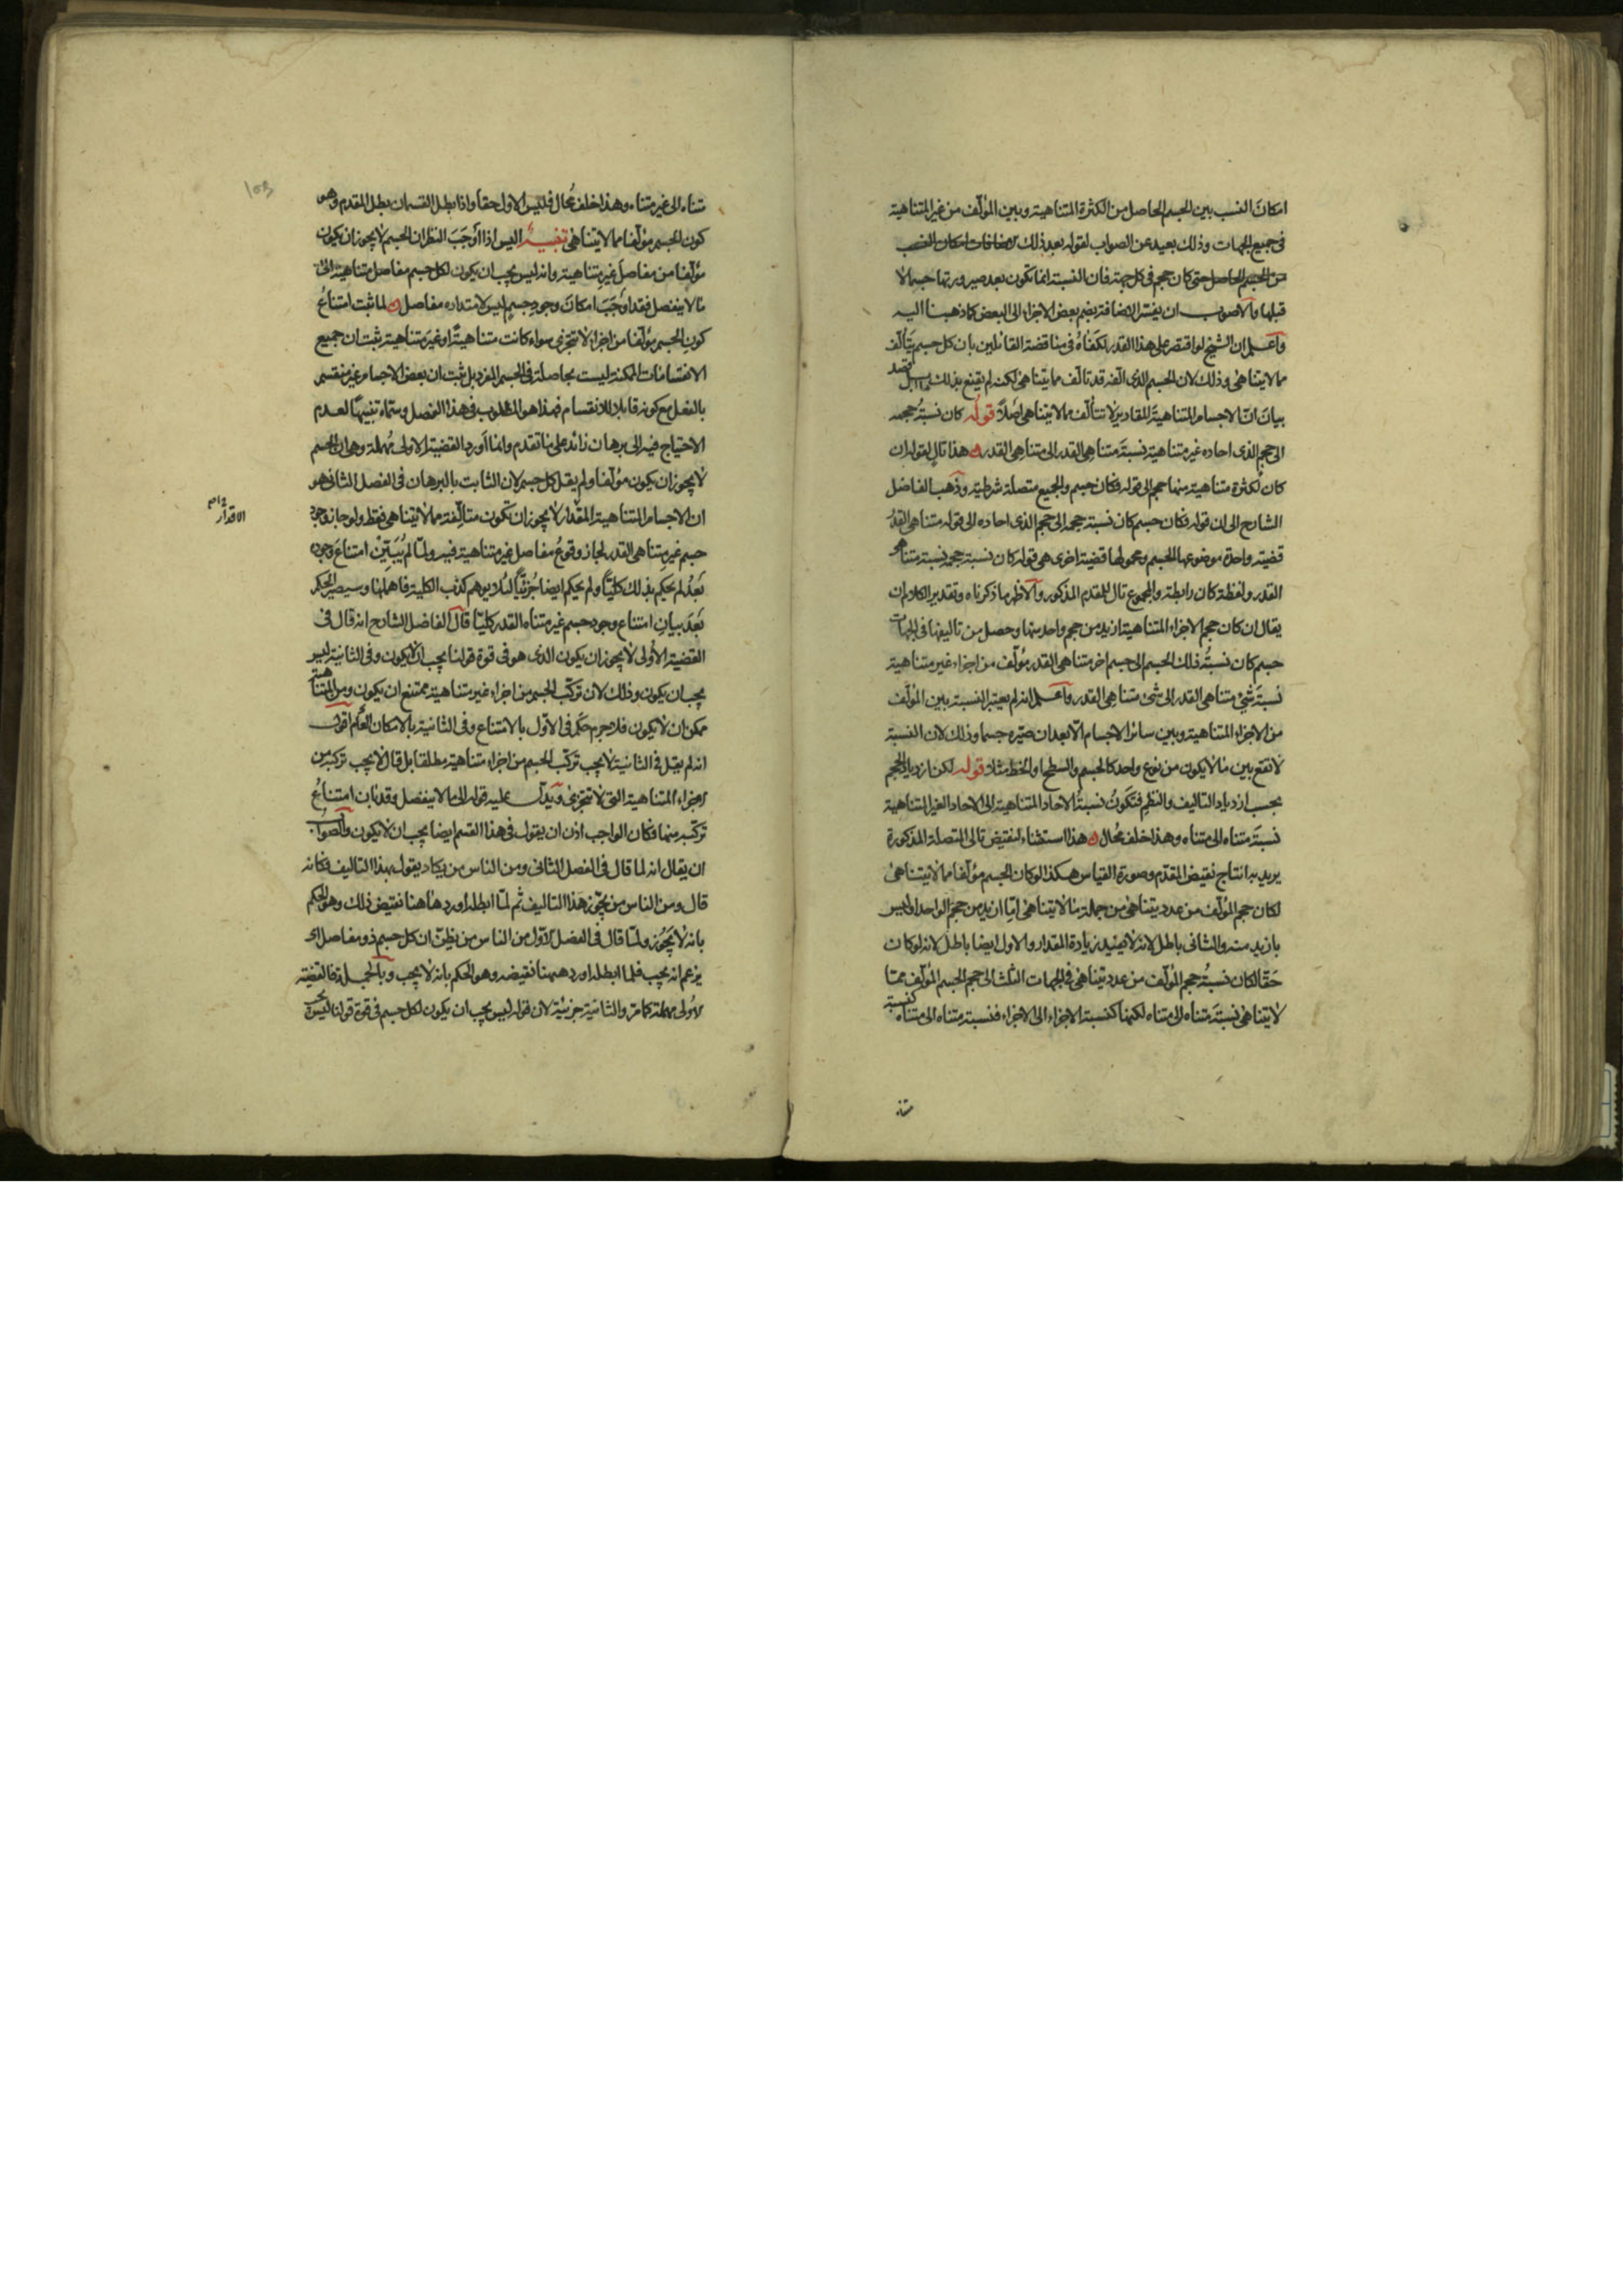 امكان النسب بين الجسم الحاصل من الكثرة المتناهية وبين المؤلف من غير المتناهية
فى جميع الجهات وذلك بعيد عن الصواب لقوله بعد ذلك لاضافات امكان النسب
من الجسم الحاصل حتى كان حجم فى كل جهة فان النسبة انما تكون بعد صيرورتها جسما لا
قبلها والاصوب ان يفسر الاضافة بضم بعض الاجزاء الى البعض كما ذهبنا اليه
واعلم ان الشيخ لو اقتصر على هذا القدر لكفاه فى مناقضة القائلين بان كل جسم يتألف
مما لا يتناهى وذلك لان الجسم الذى الفه قد تالف مما يتناهى لكنه لم يقنع بذلك بل قصد
بيان ان الاجسام المتناهية المقادير لا تتألف مما لا يتناهى اصلا قوله كان نسبة حجمه
الى حجم الذى احاده غير متناهية نسبة متناهى القدر الى متناهى القدر هذا تال لقوله ان
كان لكثرة متناهية منها حجم الى قوله فكان جسم والجميع متصلة شرطية وذهب الفاضل
الشارح الى ان قوله فكان جسم كان نسبة حجمه الى حجم الذى احاده الى قوله متناهى القدر
قضية واحدة موضوعها الجسم ومحمولها قضية اخرى هى قوله كان نسبة حجمه نسبة متناهى
القدر ولفظة كان رابطة والمجموع تال للمقدم المذكور والاظهر ما ذكرناه وتقدير الكلام ان
يقال ان كان حجم الاجزاء المتناهية ازيد من حجم واحد منها وحصل من تاليفها فى الجهات
جسم كان نسبة ذلك الجسم الى جسم اخر متناهى القدر مؤلف من اجزاء غير متناهية
نسبة شئ متناهى القدر الى شئ متناهى القدر واعلم انه لم يعتبر النسبة بين المؤلف
من الاجزاء المتناهية وبين سائر الاجسام الا بعد ان صيره جسما وذلك لان النسبة
لا تقع بين ما لا يكون من نوع واحد كالجسم والسطح او الخط مثلا قوله لكن ازدياد الحجم
بحسب ازدياد التاليف والنظم فتكون نسبة الاحاد المتناهية الى الاحاد الغير المتناهية
نسبة متناه الى متناه وهذا خلف محال هذا استثناء لنقيض تالى المتصلة المذكورة
يريد به انتاج نقيض المقدم وصورة القياس هكذا لو كان الجسم مؤلفا مما لا يتناهى
لكان حجم المؤلف من عدد يتناهى من جملة ما لا يتناهى اما ازيد من حجم الواحد او ليس
بازيد منه والثانى باطل لانه لا يفيد زيادة المقدار والاول ايضا باطل لانه لو كان
حقا لكان نسبة حجم المؤلف من عدد يتناهى فى الجهات الثلث الى حجم الجسم المؤلف مما
لا يتناهى نسبة متناه الى متناه لكنها كنسبة الاجزاء الى الاجزاء فنسبة متناه الى متناه كنسبة
متناه
متناه الى غير متناه وهذا خلف محال فليس الاول حقا واذا بطل القسمان بطل المقدم وهو
كون الجسم مؤلفا مما لا يتناهى تنبيه اليس اذا اوجب النظر ان الجسم لا يجوز ان يكون
مؤلفا من مفاصل غير متناهية وانه ليس يجب ان يكون لكل جسم مفاصل متناهية الى
ما لا ينفصل فقد اوجب امكان وجود جسم ليس لامتداده مفاصل لما ثبت امتناع
كون الجسم مؤلفا من اجزاء لا تتجزى سواء كانت متناهية او غير متناهية ثبت ان جميع
الانقسامات الممكنة ليست بحاصلة فى الجسم المفرد بل ثبت ان بعض الاجسام غير منقسم
بالفعل مع كونه قابلا للانقسام فهذا هو المطلوب فى هذا الفصل وسماه تنبيها لعدم
الاحتياج فيه الى برهان زائد على ما تقدم وانما اورد القضية الاولى مهملة وهى ان الجسم
لا يجوز ان يكون مؤلفا ولم يقل كل جسم لان الثابت بالبرهان فى الفصل الثانى هو
ان الاجسام المتناهية المقدار لا يجوز ان تكون متألفة مما لا يتناهى فقط ولو جاز وجود
الاقدار
جسم غير متناهى القدر لجاز وقوع مفاصل غير متناهية فيه ولما لم يبين امتناع وجوده
بعد لم يحكم بذلك كليا ولم يحكم ايضا جزئيا لئلا يوهم كذب الكلية فاهملها وسيصير الحكم
بعد بيان امتناع وجود جسم غير متناه القدر كليا قال الفاضل الشارح انه قال فى
القضية الاولى لا يجوز ان يكون الذى هو فى قوة قولنا يجب ان لا يكون وفى الثانية ليس
يجب ان يكون وذلك لان تركب الجسم من اجزاء غير متناهية ممتنع ان يكون ومن المتناهية
ممكن ان لا يكون فلا جرم حكم فى الاول بالامتناع وفى الثانية بالامكان العام اقول
انه لم يقل فى الثانية لا يجب تركب الجسم من اجزاء متناهية مطلقا بل قال لا يجب تركبه من
اجزاء المتناهية التى لا تتجزى ويدل عليه قوله الى ما لا ينفصل وقد بان امتناع
تركبه منها فكان الواجب اذن ان يقول فى هذا القسم ايضا يجب ان لا يكون والصواب
ان يقال انه لما قال فى الفصل الثانى ومن الناس من يكاد يقول بهذا التاليف فكانه
قال ومن الناس من يجوز هذا التاليف ثم لما ابطله اورد ههنا نقيض ذلك وهو الحكم
بانه لا يجوز ولما قال فى الفصل الاول من الناس من يظن ان كل جسم ذو مفاصل اى
يزعم انه يجب فلما ابطله اورد ههنا نقيضه وهو الحكم بانه لا يجب وبالجملة فالقضية
الاولى مهملة كما مر والثانية جزئية لان قوله ليس يجب ان يكون لكل جسم فى قوة قولنا ليس يجب